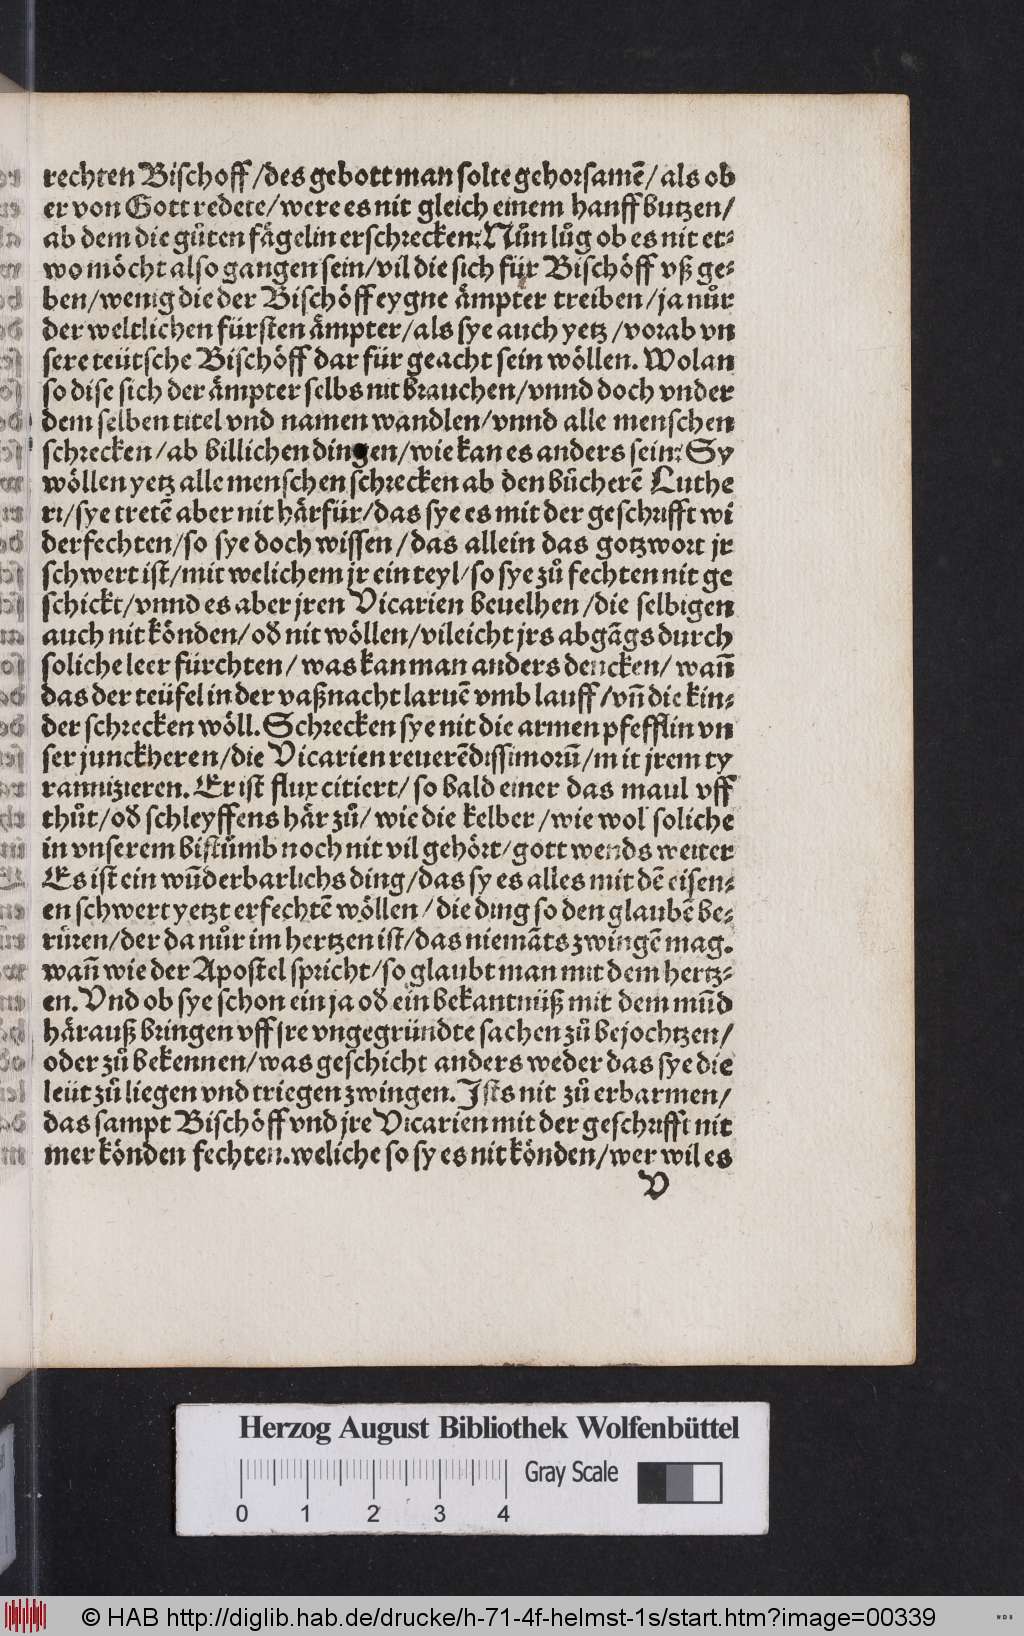 rechten Bischoff/des gebott man solte gehorsamē/als ob
er von Gott redete/were es nit gleich einem hanffbutzen/
ab dem die gůten fägelin erschrecken? Nůn lůg ob es nit et⸗
wo möcht also gangen sein/vil die sich für Bischöff vß ge⸗
ben/wenig die der Bischöff eygne ämpter treiben/ja nůr
der weltlichen fürsten ämpter/als sye auch yetz/vorab vn
sere teütsche Bischöff dar für geacht sein wöllen. Wolan
so dise sich der ämpter selbs nit brauchen/vnnd doch vnder
dem selben titel vnd namen wandlen/vnnd alle menschen
schrecken/ab billichen dingen/wie kan es anders sein? Sy
wöllen yetz alle menschen schrecken ab den bücherē Luthe
ri/sye tretē aber nit härfür/das sye es mit der geschrifft wi
derfechten/so sye doch wissen/das allein das gotzwort jr
schwert ist/mit welichem jr ein teyl/so sye zů fechten nit ge
schickt/vnnd es aber jren Vicarien beuelhen/die selbigen
auch nit könden/oď nit wöllen/vileicht jrs abgāgs durch
soliche leer fürchten/was kan man anders dencken/wañ
das der teüfel in der vaßnacht laruē vmb lauff/vñ die kin⸗
der schrecken wöll. Schrecken sye nit die armen pfefflin vn
ser junckheren/die Vicarien reuerēdissimorū/mit jrem ty
rannizieren. Er ist flux citiert/so bald einer das maul vff
thůt/oď schleyffens här zů/wie die kelber/wie wol soliche
in vnserem bistūmb noch nit vil gehört/gott wends weiter
Es ist ein wūderbarlichs ding/das sy es alles mit dē eisen⸗
en schwert yetzt erfechtē wöllen/die ding so den glaubē be⸗
rüren/der da nůr im hertzen ist/das niemāts zwingē mag.
wañ wie der Apostel spricht/so glaubt man mit dem hertz⸗
en. Vnd ob sye schon ein ja oď ein bekantnüß mit dem mūd
härauß bringen vff jre vngegründte sachen zů bejochtzen/
oder zů bekennen/was geschicht anders weder das sye die
leüt zů liegen vnd triegen zwingen. Ists nit zů erbarmen/
das sampt Bischöff vnd jre Vicarien mit der geschrifft nit
mer könden fechten. weliche so sy es nit könden/wer wil es
V
Herzog August Bibliothek Wolfenbüttel
Gray Scale
0 1 2 3 4
© HAB http://diglib.hab.de/drucke/h-71-4f-helmst-1s/start.htm?image=00339
WDB